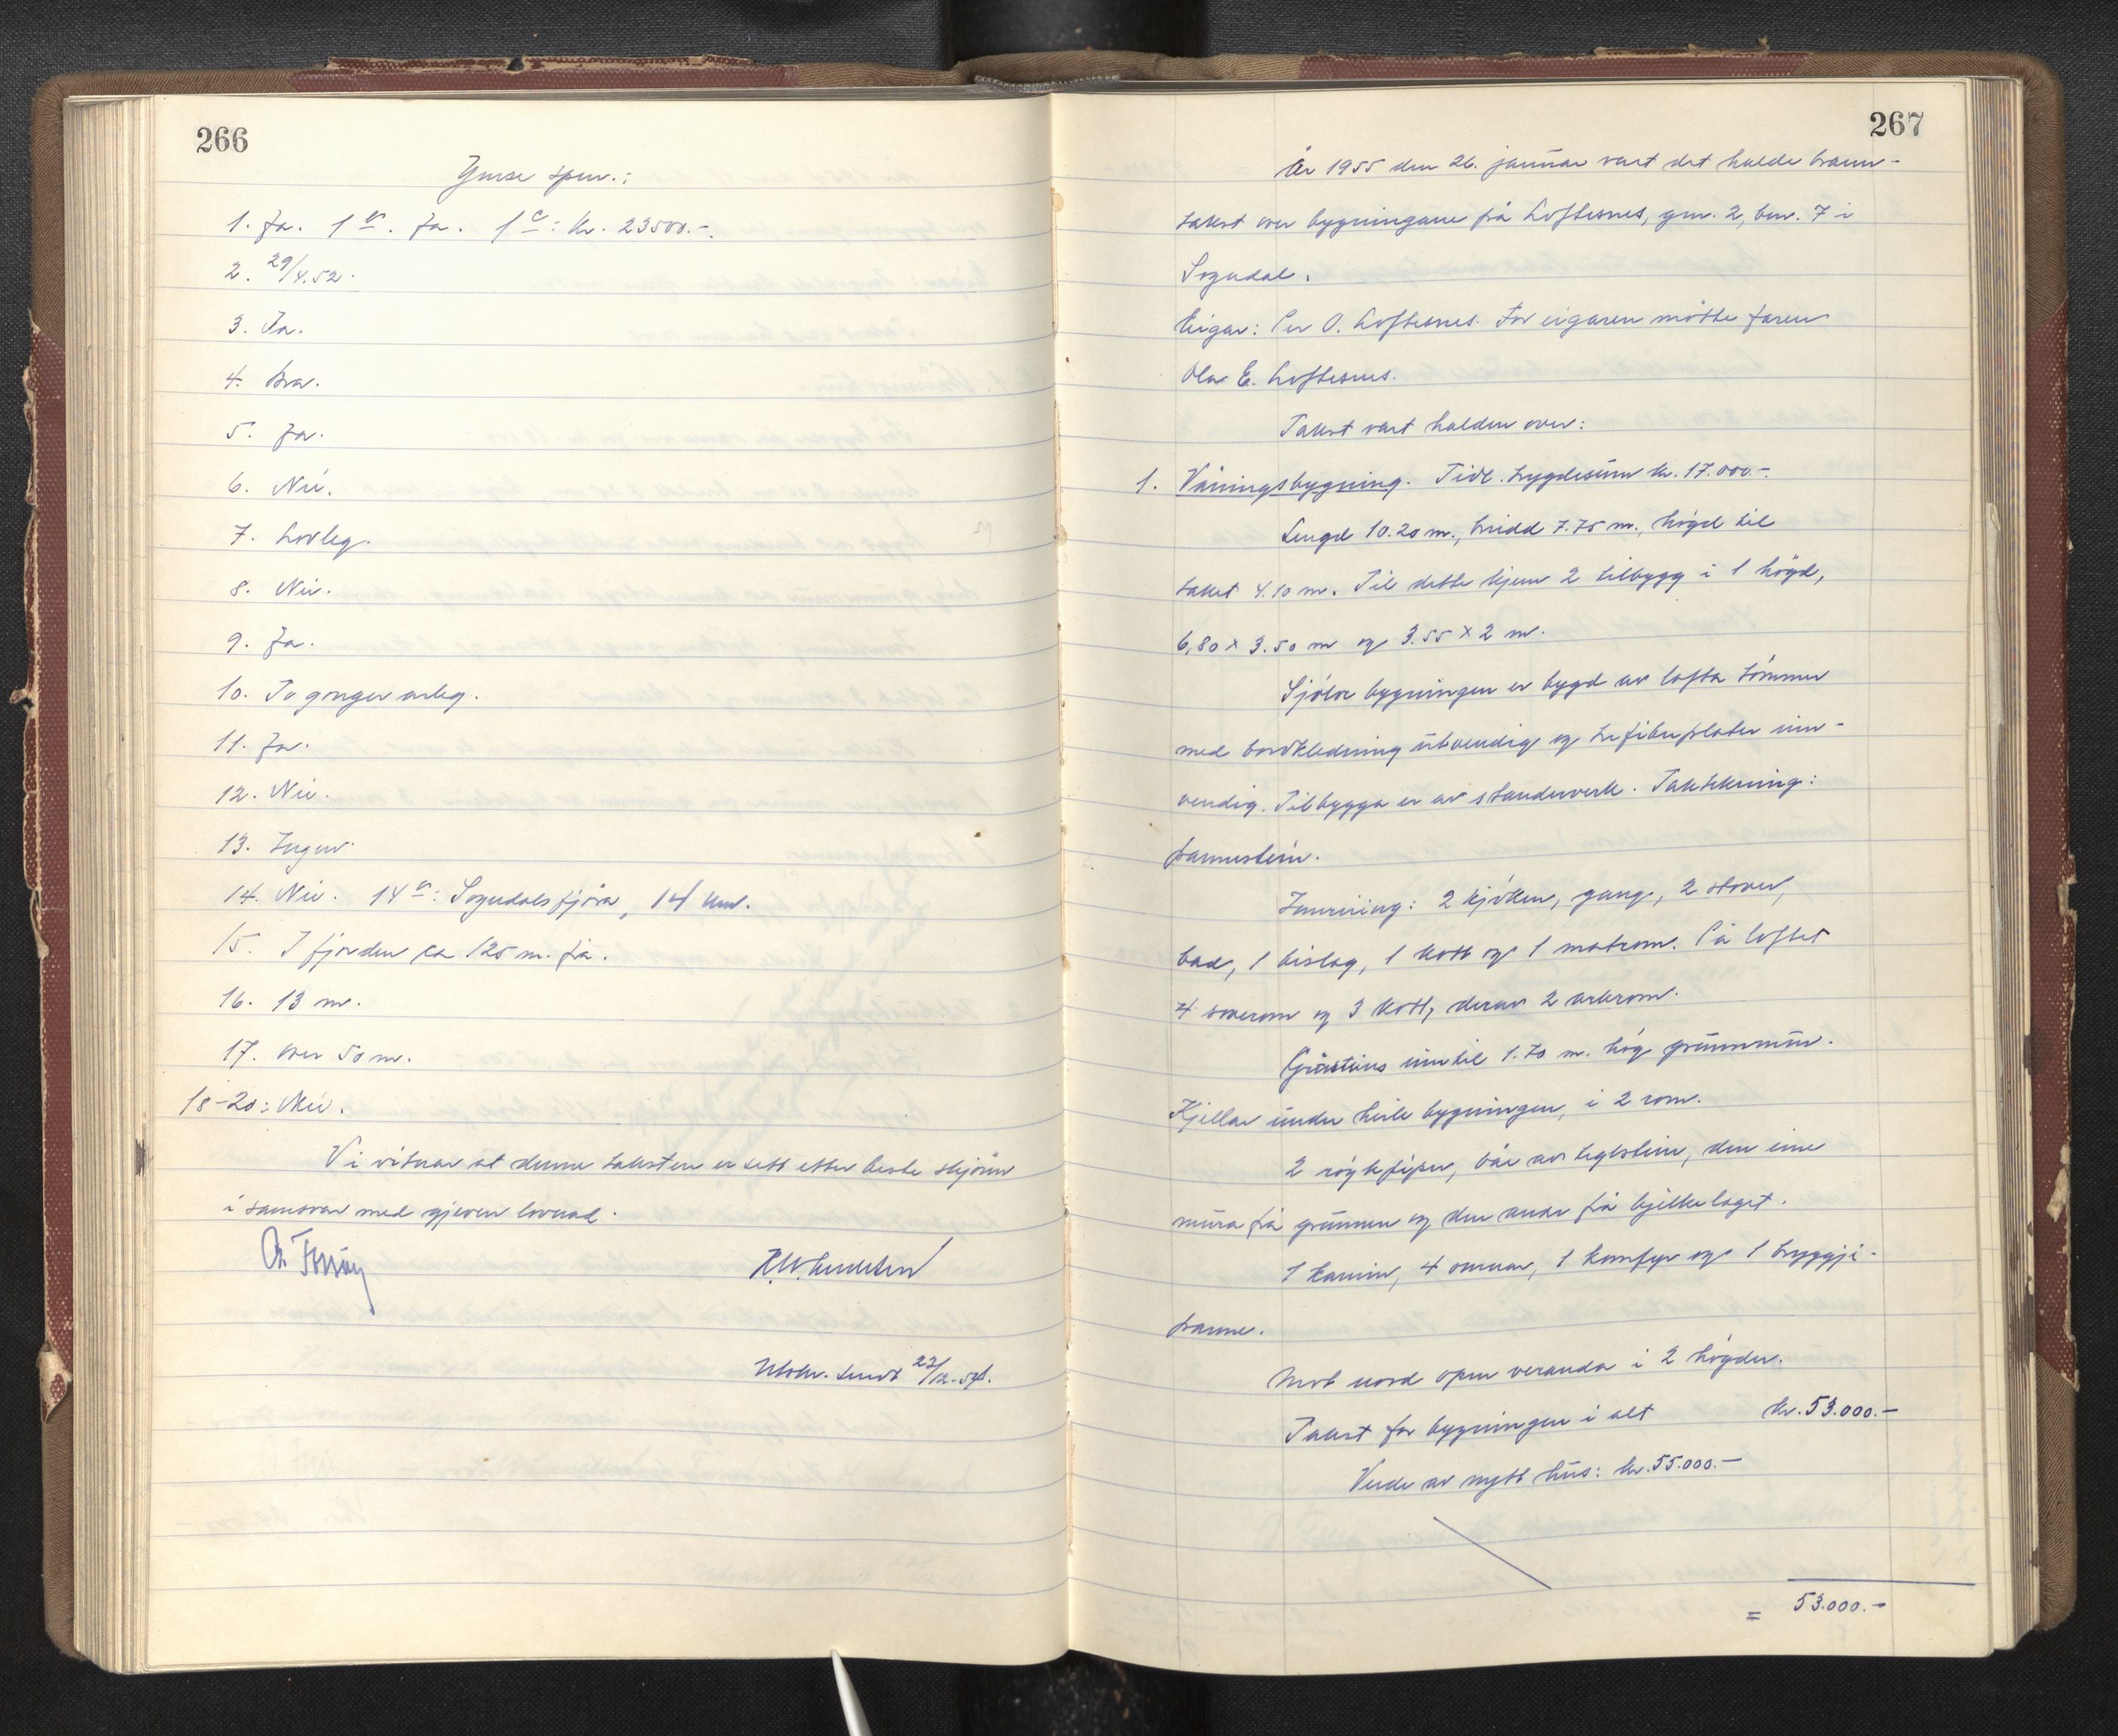 266
Ymse spm.:
1. Ja. 1 a. Ja. 1 c: Kr. 23500.-.
2. 29/4.52.
3. Ja.
4. Bra.
5. Ja.
6. Nei.
7. Lovleg.
8. Nei.
9. Ja.
10. To gonger årleg.
11. Ja.
12. Nei.
13. Ingen.
14. Nei. 14 a: Sogndalsfjøra, 14 km.
15. I fjorden ca 125 m. frå.
16. 13 m.
17. Over 50 m.
18-20: Nei.
Vi vitnar at denne taksten er sett etter beste skjønn
i samsvar med gjeven lovnad.
Utskr. sendt 22/12.54.
267
År 1955 den 26. januar vart det halde brann-
takst over bygningane på Loftesnes, gnr. 2, bnr. 7 i
Sogndal.
Eigar: Per O. Loftesnes. For eigaren møtte faren
Olav E. Loftesnes.
Takst vart halden over:
1. Våningsbygning. Tidl. trygdesum kr. 17.000.-.
Lengd 10.20 m., breidd 7.75 m., høgd til
taket 4.10 m. Til dette kjem 2 tilbygg i 1 høgd,
6,80 x 3.50 m og 3.55 x 2 m.
Sjølve bygningen er bygd av lafta tømmer
med bordkledning utvendig og trefiberplater inn-
vendig. Tilbygga er av standerverk. Taktekning:
pannestein.
Innreiing: 2 kjøken, gang, 2 stover,
bad, 1 bislag, 1 kott og 1 matrom. På loftet
4 soverom og 3 kott, derav 2 arkrom.
Gråsteins inntil 1.70 m. høg grunnmur.
Kjellar under heile bygningen, i 2 rom.
2 røykpiper, båe av teglstein, den eine
mura frå grunnen og den andre frå bjelkelaget.
1 kamin, 4 omnar, 1 komfyr og 1 bryggje-
panne.
Mot nord open veranda i 2 høgder.
Takst for bygningen i alt kr. 53.000.-
Verde av nytt hus: kr. 55.000.-
= 53.000.-